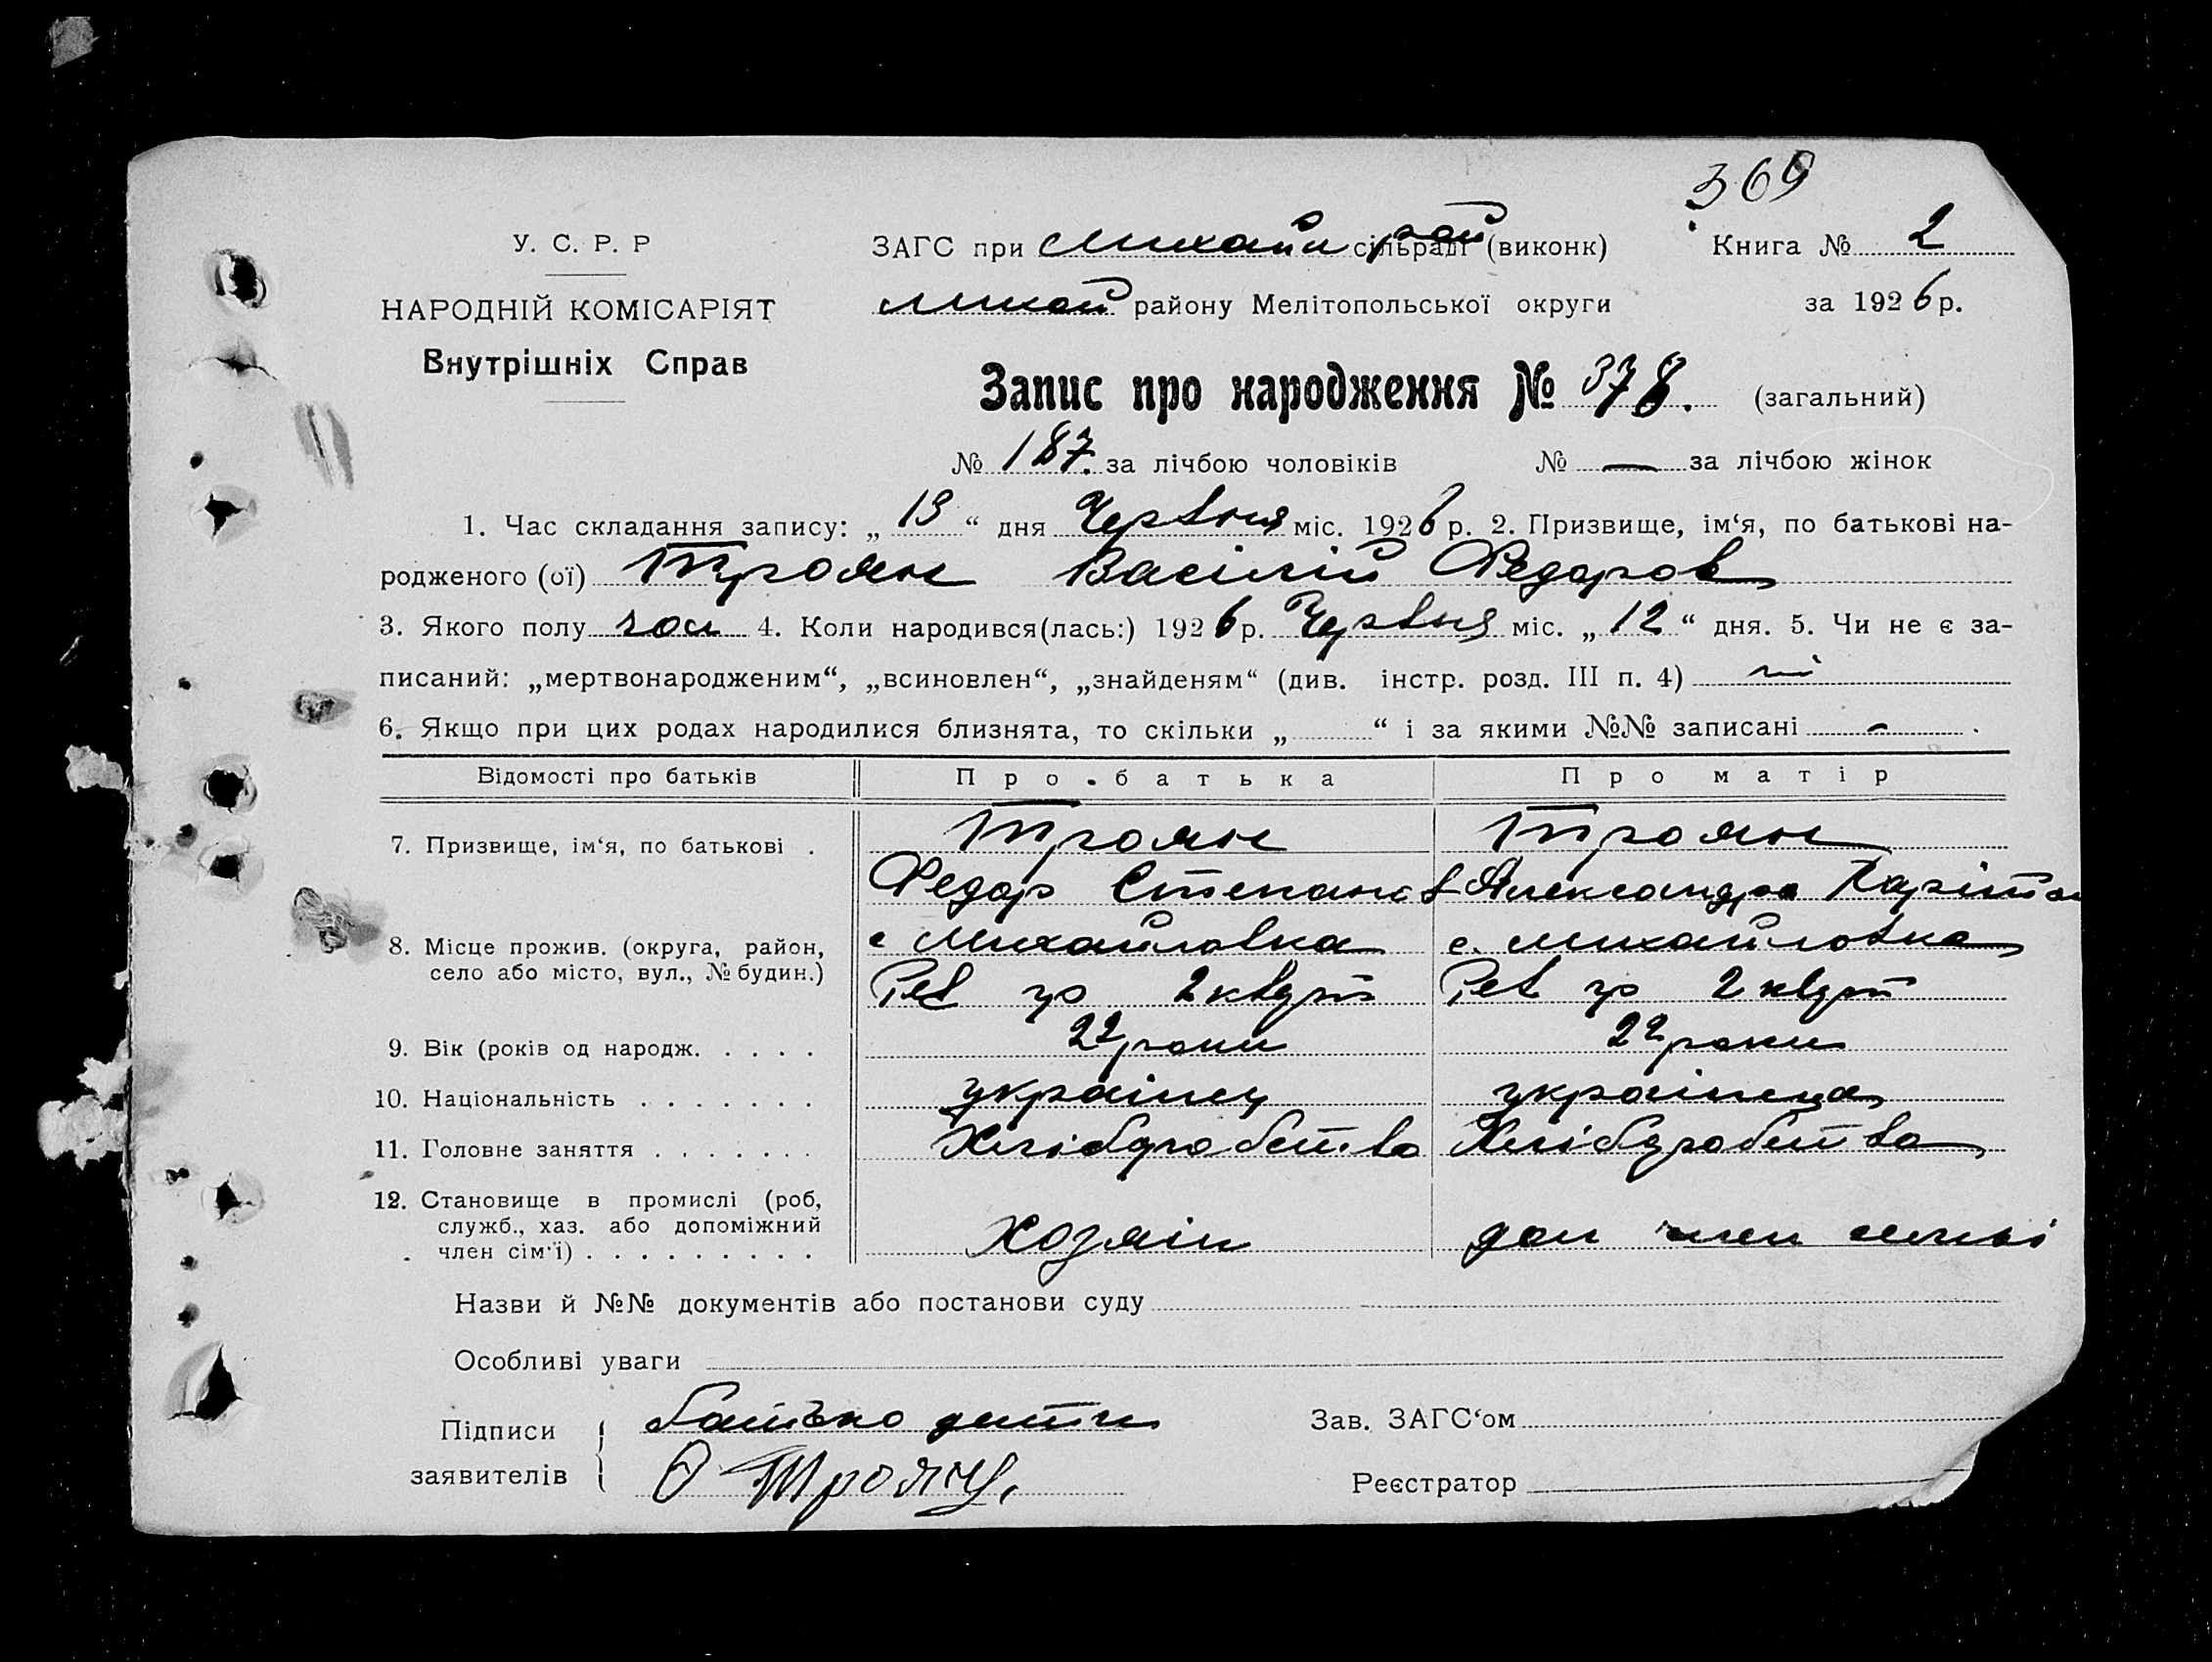 369
У. С. Р. Р
ЗАГС при Михайл сільраді рай (виконк)
Книга № 2
НАРОДНІЙ КОМІСАРІЯТ
Михай району Мелітопольської округи
за 1926 р.
Внутрішніх Справ
Запис про народження № 378. (загальний)
№ 187. за лічбою чоловіків № — за лічбою жінок
1. Час складання запису: „ 13 “ дня Червня міс. 1926 р. 2. Призвище, ім‘я, по батькові на-
родженого (ої) Троян Васілій Федоров
3. Якого полу чол 4. Коли народився(лась:) 1926 р. Червня міс. „ 12 “ дня. 5. Чи не є за-
писаний: „мертвонародженим“, „всиновлен“, „знайденям“ (див. інстр. розд. III п. 4) ні
6. Якщо при цих родах народилися близнята, то скільки „ “ і за якими №№ записані - .
Відомості про батьків Про батька Про матір
7. Призвище, ім‘я, по батькові . Троян Троян
Федор Степанов Александра Харітон
8. Місце прожив. (округа, район, с Михайловка с. Михайловка
село або місто, вул., № будин.) Рев гр 2 квдрт Рев гр 2 квдрт
9. Вік (років од народж. . . . . 22 роки 22 роки
10. Національність . . . . . . . українец українца
11. Головне заняття . . . . . . . Хлібдробства Хлібдробства
12. Становище в промислі (роб,
служб., хаз. або допоміжний
член сім‘ї) . . . . . . . . . Хозяін доп член семьі
Назви й №№ документів або постанови суду
Особливі уваги
Підписи батько дитин Зав. ЗАГС‘ом
заявителів Ѳ Троян Реєстратор